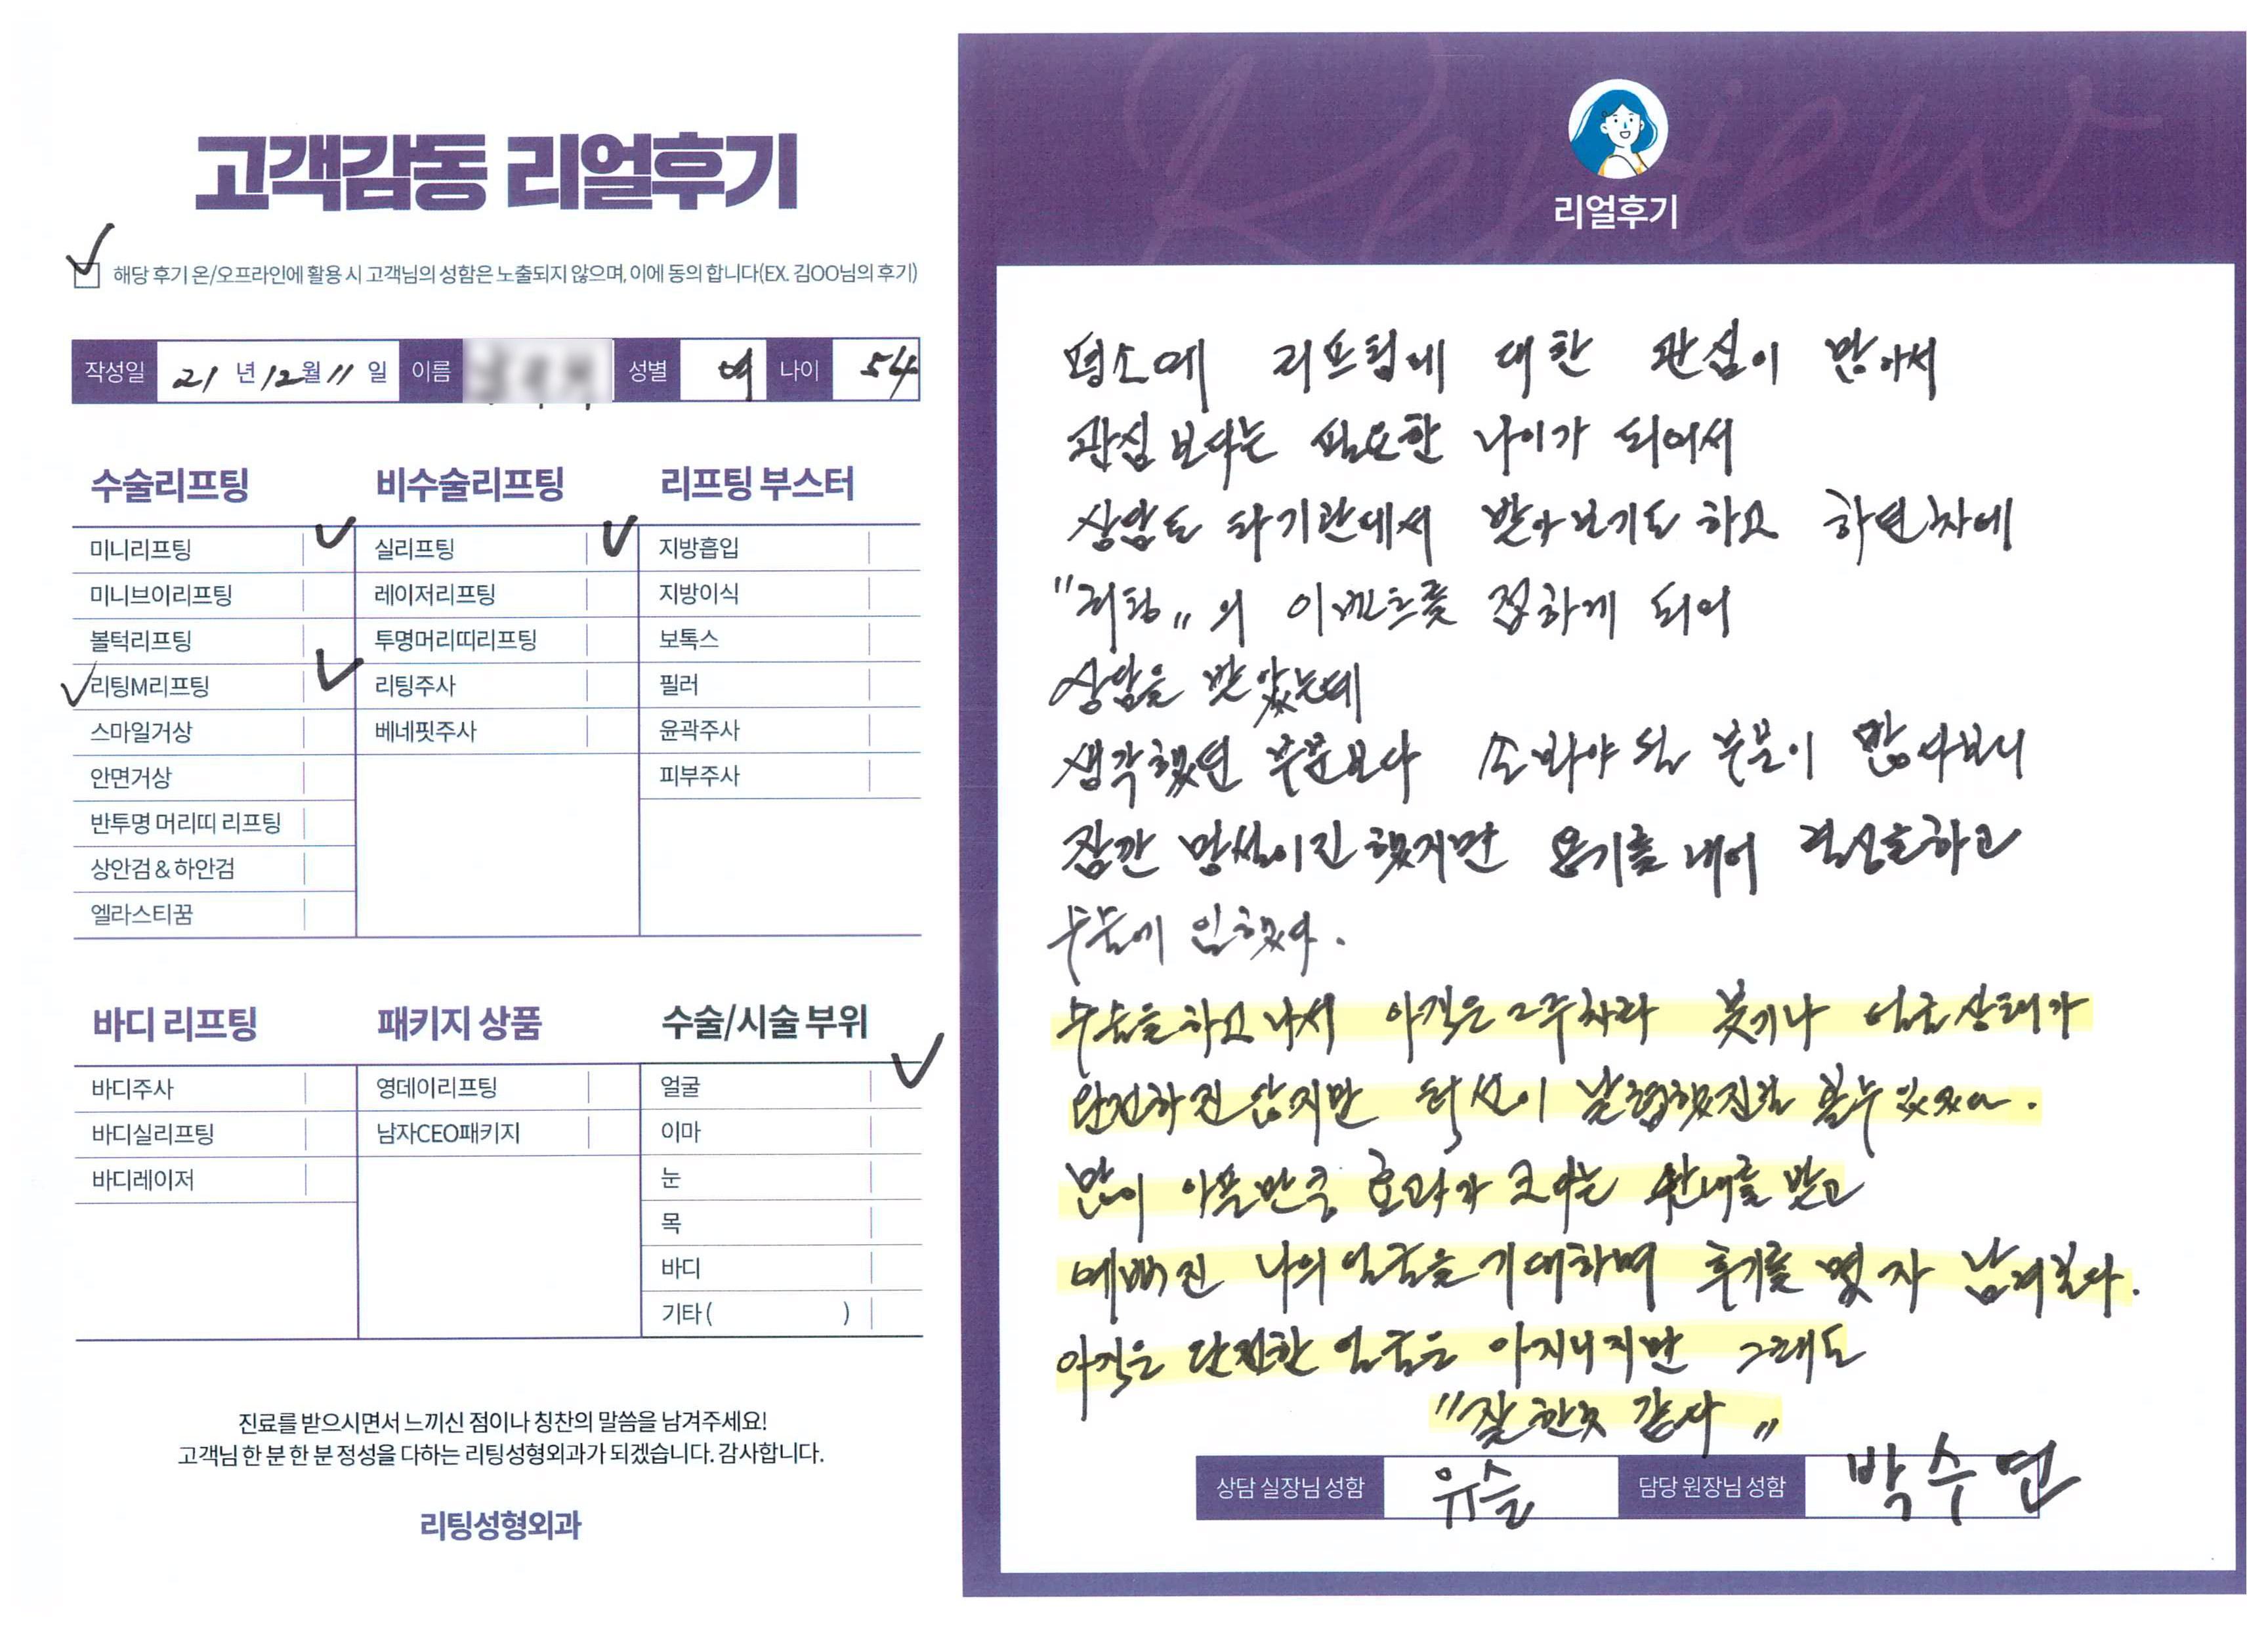 고객감동 리얼후기
해당 후기 온/오프라인에 활용 시 고객님의 성함은 노출되지 않으며, 이에 동의 합니다(EX. 김OO님의 후기)
작성일 21 년 12 월 11 일 이름 성별 여 나이 54
수술리프팅 비수술리프팅 리프팅 부스터
미니리프팅 실리프팅 지방흡입
미니브이리프팅 레이저리프팅 지방이식
볼턱리프팅 투명머리띠리프팅 보톡스
리팅M리프팅 리팅주사 필러
스마일거상 베네핏주사 윤곽주사
안면거상 피부주사
반투명 머리띠 리프팅
상안검 & 하안검
엘라스티꿈
바디 리프팅 패키지 상품 수술/시술 부위
바디주사 영데이리프팅 얼굴
바디실리프팅 남자CEO패키지 이마
바디레이저 눈
목
바디
기타 ( )
진료를 받으시면서 느끼신 점이나 칭찬의 말씀을 남겨주세요!
고객님 한 분 한 분 정성을 다하는 리팅성형외과가 되겠습니다. 감사합니다.
리팅성형외과
Review
리얼후기
평소에 리프팅에 대한 관심이 많아서
관심 보다는 필요한 나이가 되어서
상담도 타기관에서 받아보기도 하고 하던차에
"리팅"의 이벤트를 접하게 되어
상담을 받았는데
생각했던 부분보다 손봐야 될 부분이 많다보니
잠깐 망설이진 했지만 용기를 내어 결심을하고
수술에 임했다.
수술을하고나서 아직은 2주차라 붓기나 얼굴상태가
완전하진 않지만 턱선이 갸름해진걸 볼수있었다.
많이 아픈만큼 효과가 크다는 안내를 받고
예뻐진 나의얼굴을 기대하며 후기를 몇 자 남겨본다.
아직은 완전한 얼굴은 아지니지만 그래도
"잘한것 같다"
상담 실장님 성함 유슬 담당 원장님 성함 박수연